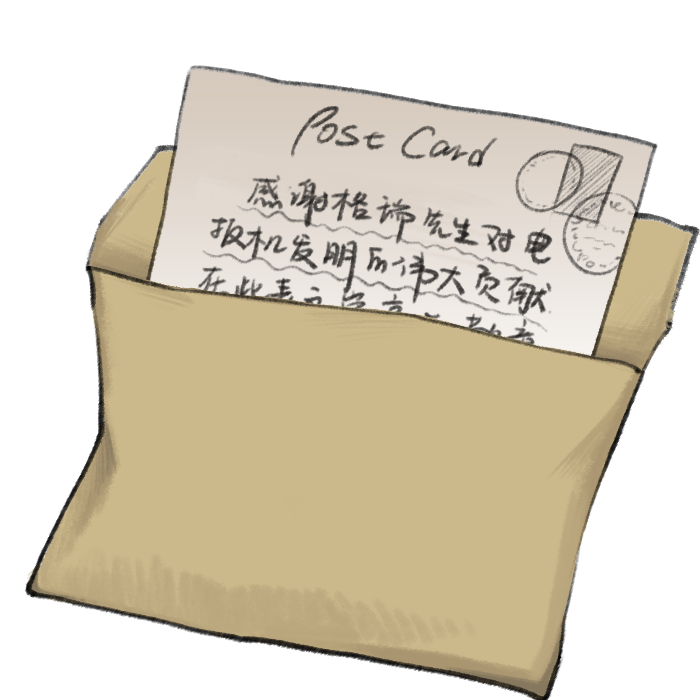 Post Card
感谢格谛先生对电
报机发明的伟大贡献
在此表示